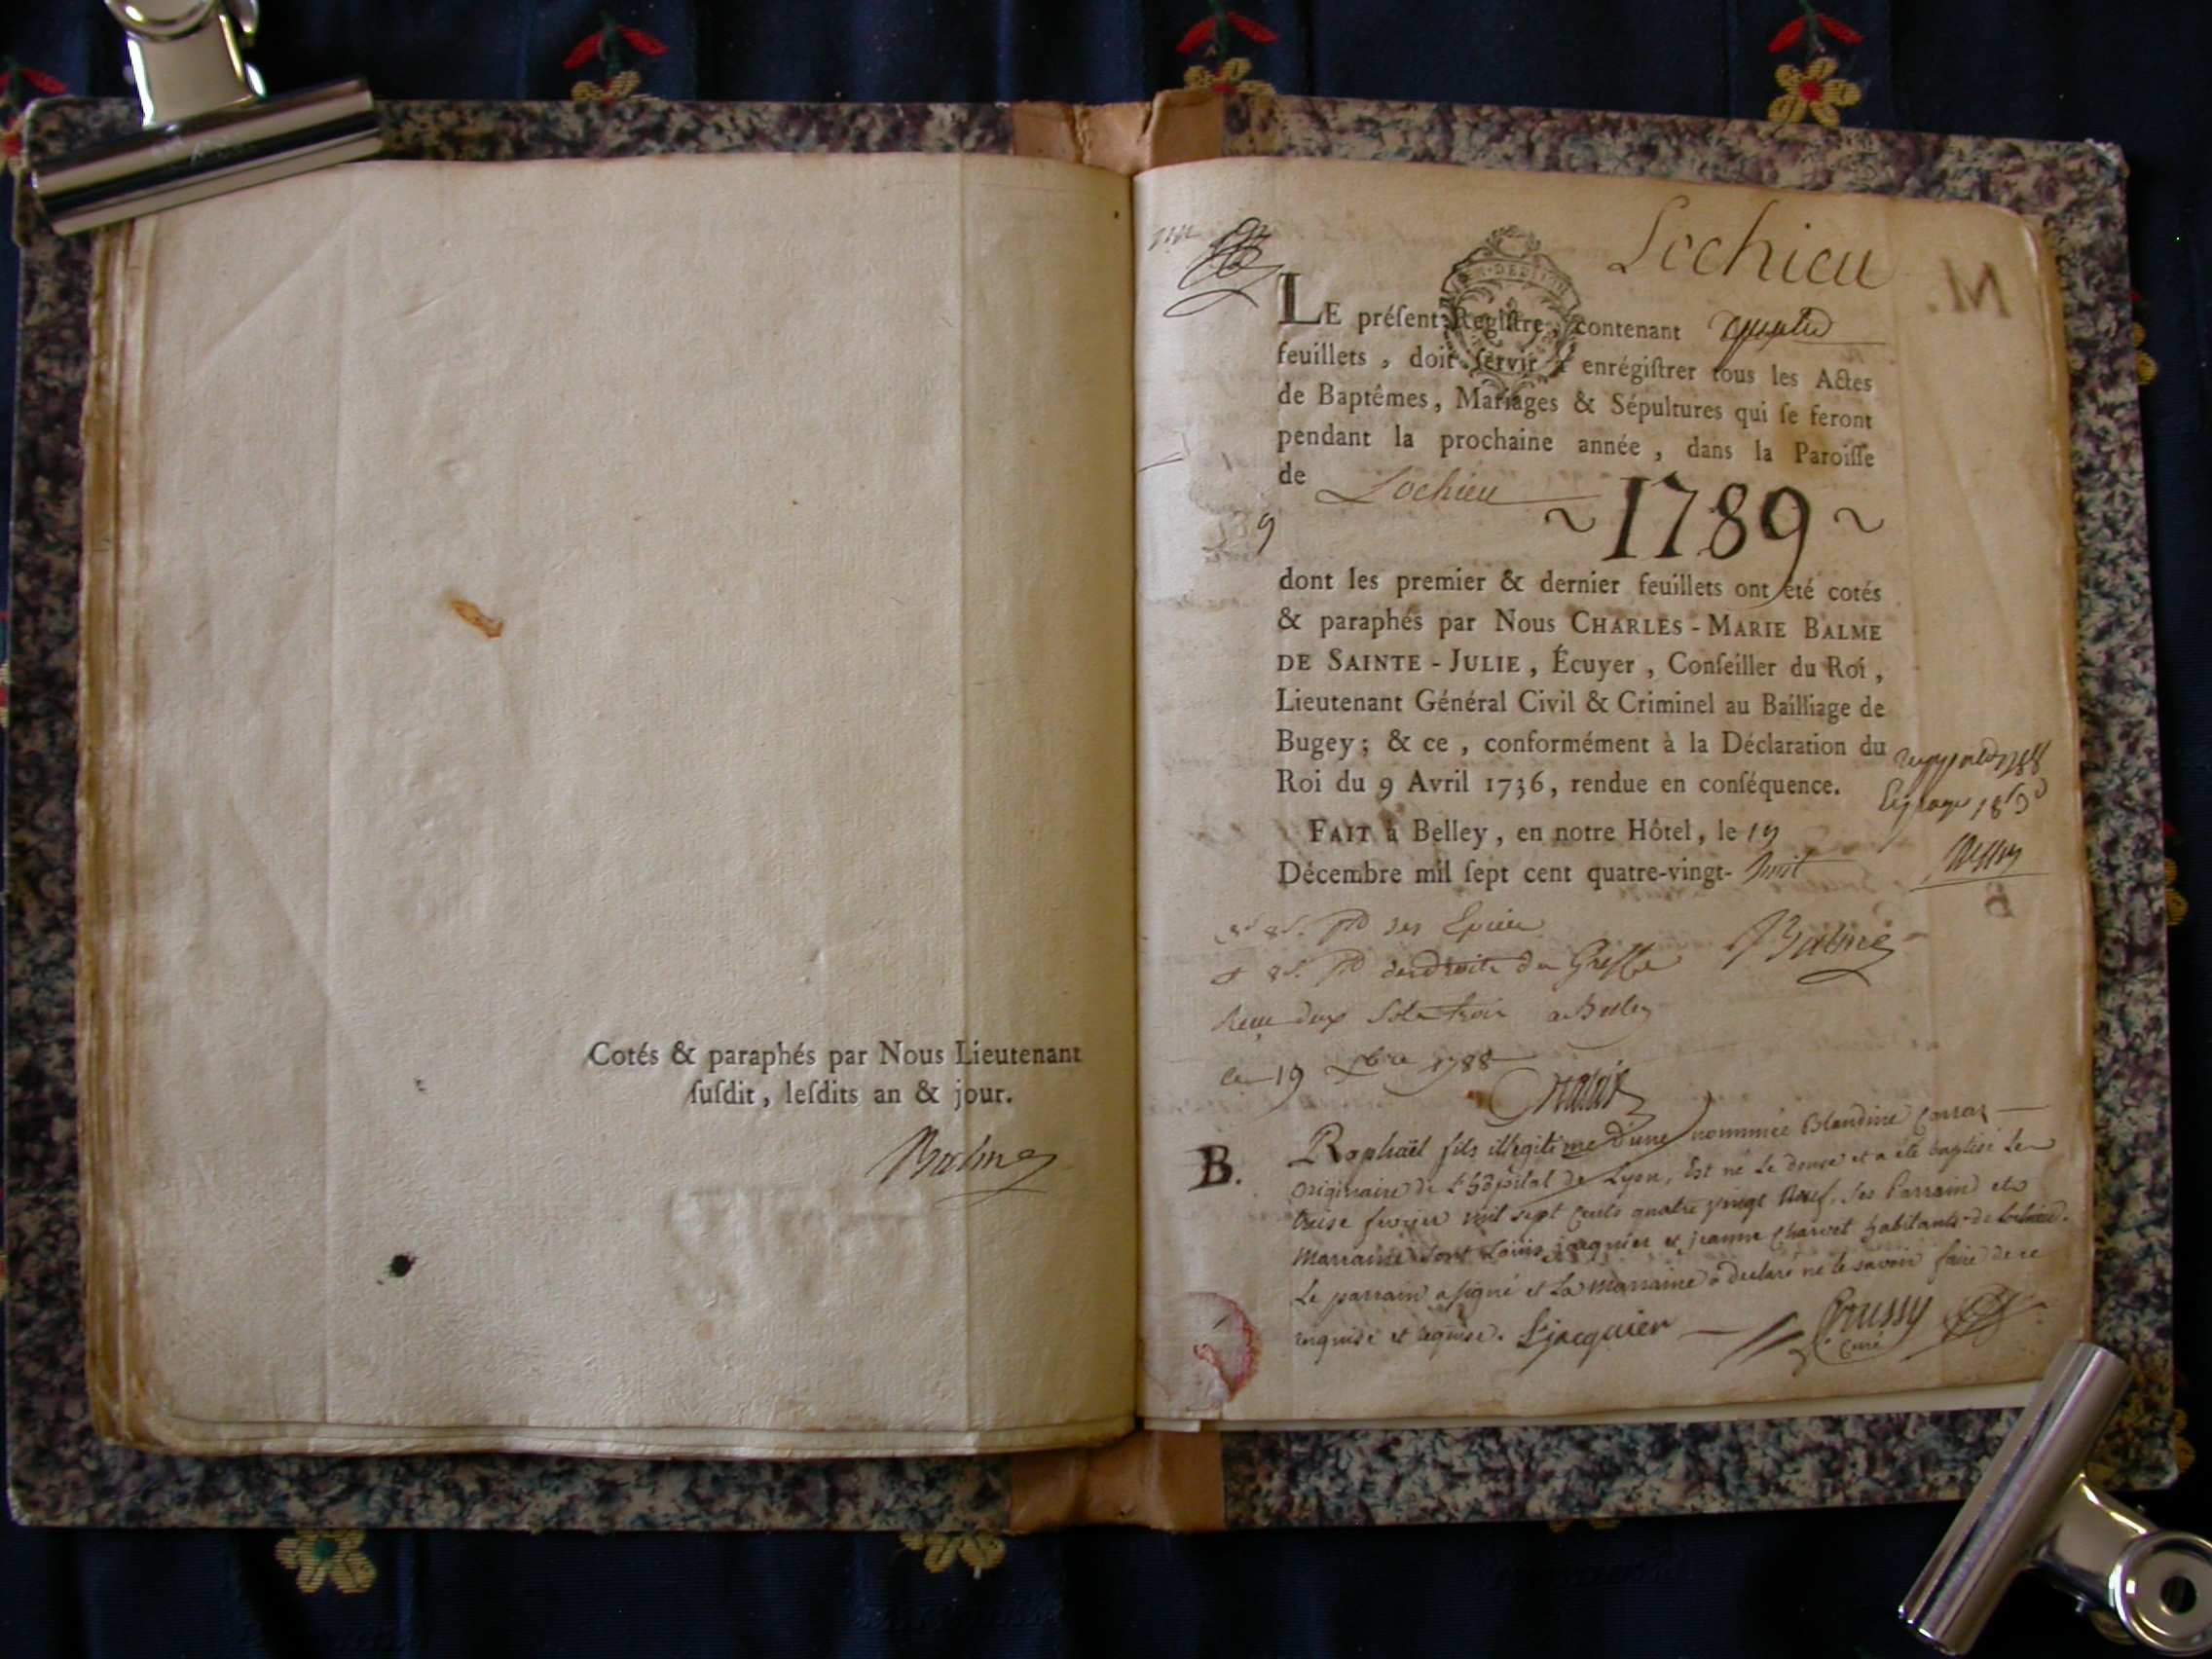 Cotés & paraphés par Nous Lieutenant
ſuſdit, leſdits an & jour.
Balme
Lochieu
LE préſent Regiſtre, contenant quatre
feuillets, doit ſervir à enrégiſtrer tous les Actes
de Baptêmes, Mariages & Sépultures qui ſe feront
pendant la prochaine année, dans la Paroiſſe
de Lochieu
~ 1789 ~
9
dont les premier & dernier feuillets ont été cotés
& paraphés par Nous CHARLES-MARIE BALME
DE SAINTE-JULIE, Écuyer, Conſeiller du Roi,
Lieutenant Général Civil & Criminel au Bailliage de
Bugey; & ce, conformément à la Déclaration du
Roi du 9 Avril 1736, rendue en conſéquence.
FAIT à Belley, en notre Hôtel, le 19
Décembre mil ſept cent quatre-vingt-huit
Balme
des droits du Greffe
a Belley
le 19 Xbre 1788
B. Raphaël fils illégitime d'une nommée Blandine Corraz
originaire de L'hôpital de Lyon, Est né le douse et a été baptisé le
treise fevrier mil sept cents quatre vingt Neuf. Ses Parrain et
Marraine sont Loüis jaquier et jeanne Charvet habitants de lochieu.
Le parrain a signé et La Marraine a declaré ne le savoir faire de ce
enquise et requise. L jacquier Roussy
Curé